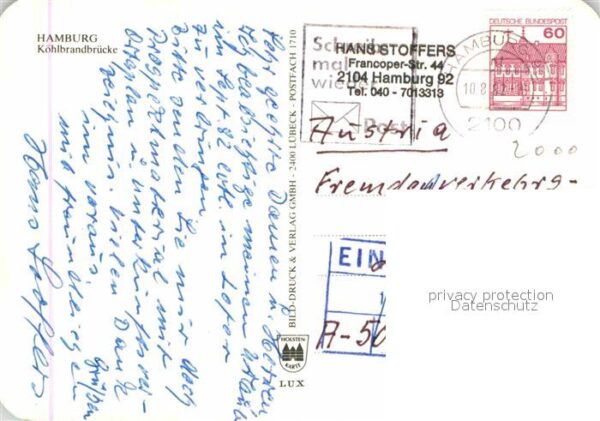 HAMBURG
Köhlbrandbrücke
Sehr geehrte Damen u. Herren,
ich beabsichtige meinen Urlaub
im
zu verbringen.
Bitte senden Sie mir doch
Prospektmaterial mit
Ortsplan u. Unterkunftsver-
zeichnis. Vielen Dank
im voraus.
mit freundlichen Grüßen
Hans Stoffers
BILD-DRUCK & VERLAG GMBH - 2400 LÜBECK - POSTFACH 1710
HOLSTEN
KARTE
LUX
Schreib
mal
wieder
Post
HANS STOFFERS
Francoper-Str. 44
2104 Hamburg 92
Tel. 040 - 7013313
HAMBURG
10.8
2100
DEUTSCHE BUNDESPOST
60
2000
Austria
Fremdenverkehrs-
EIN
A-50
privacy protection
Datenschutz